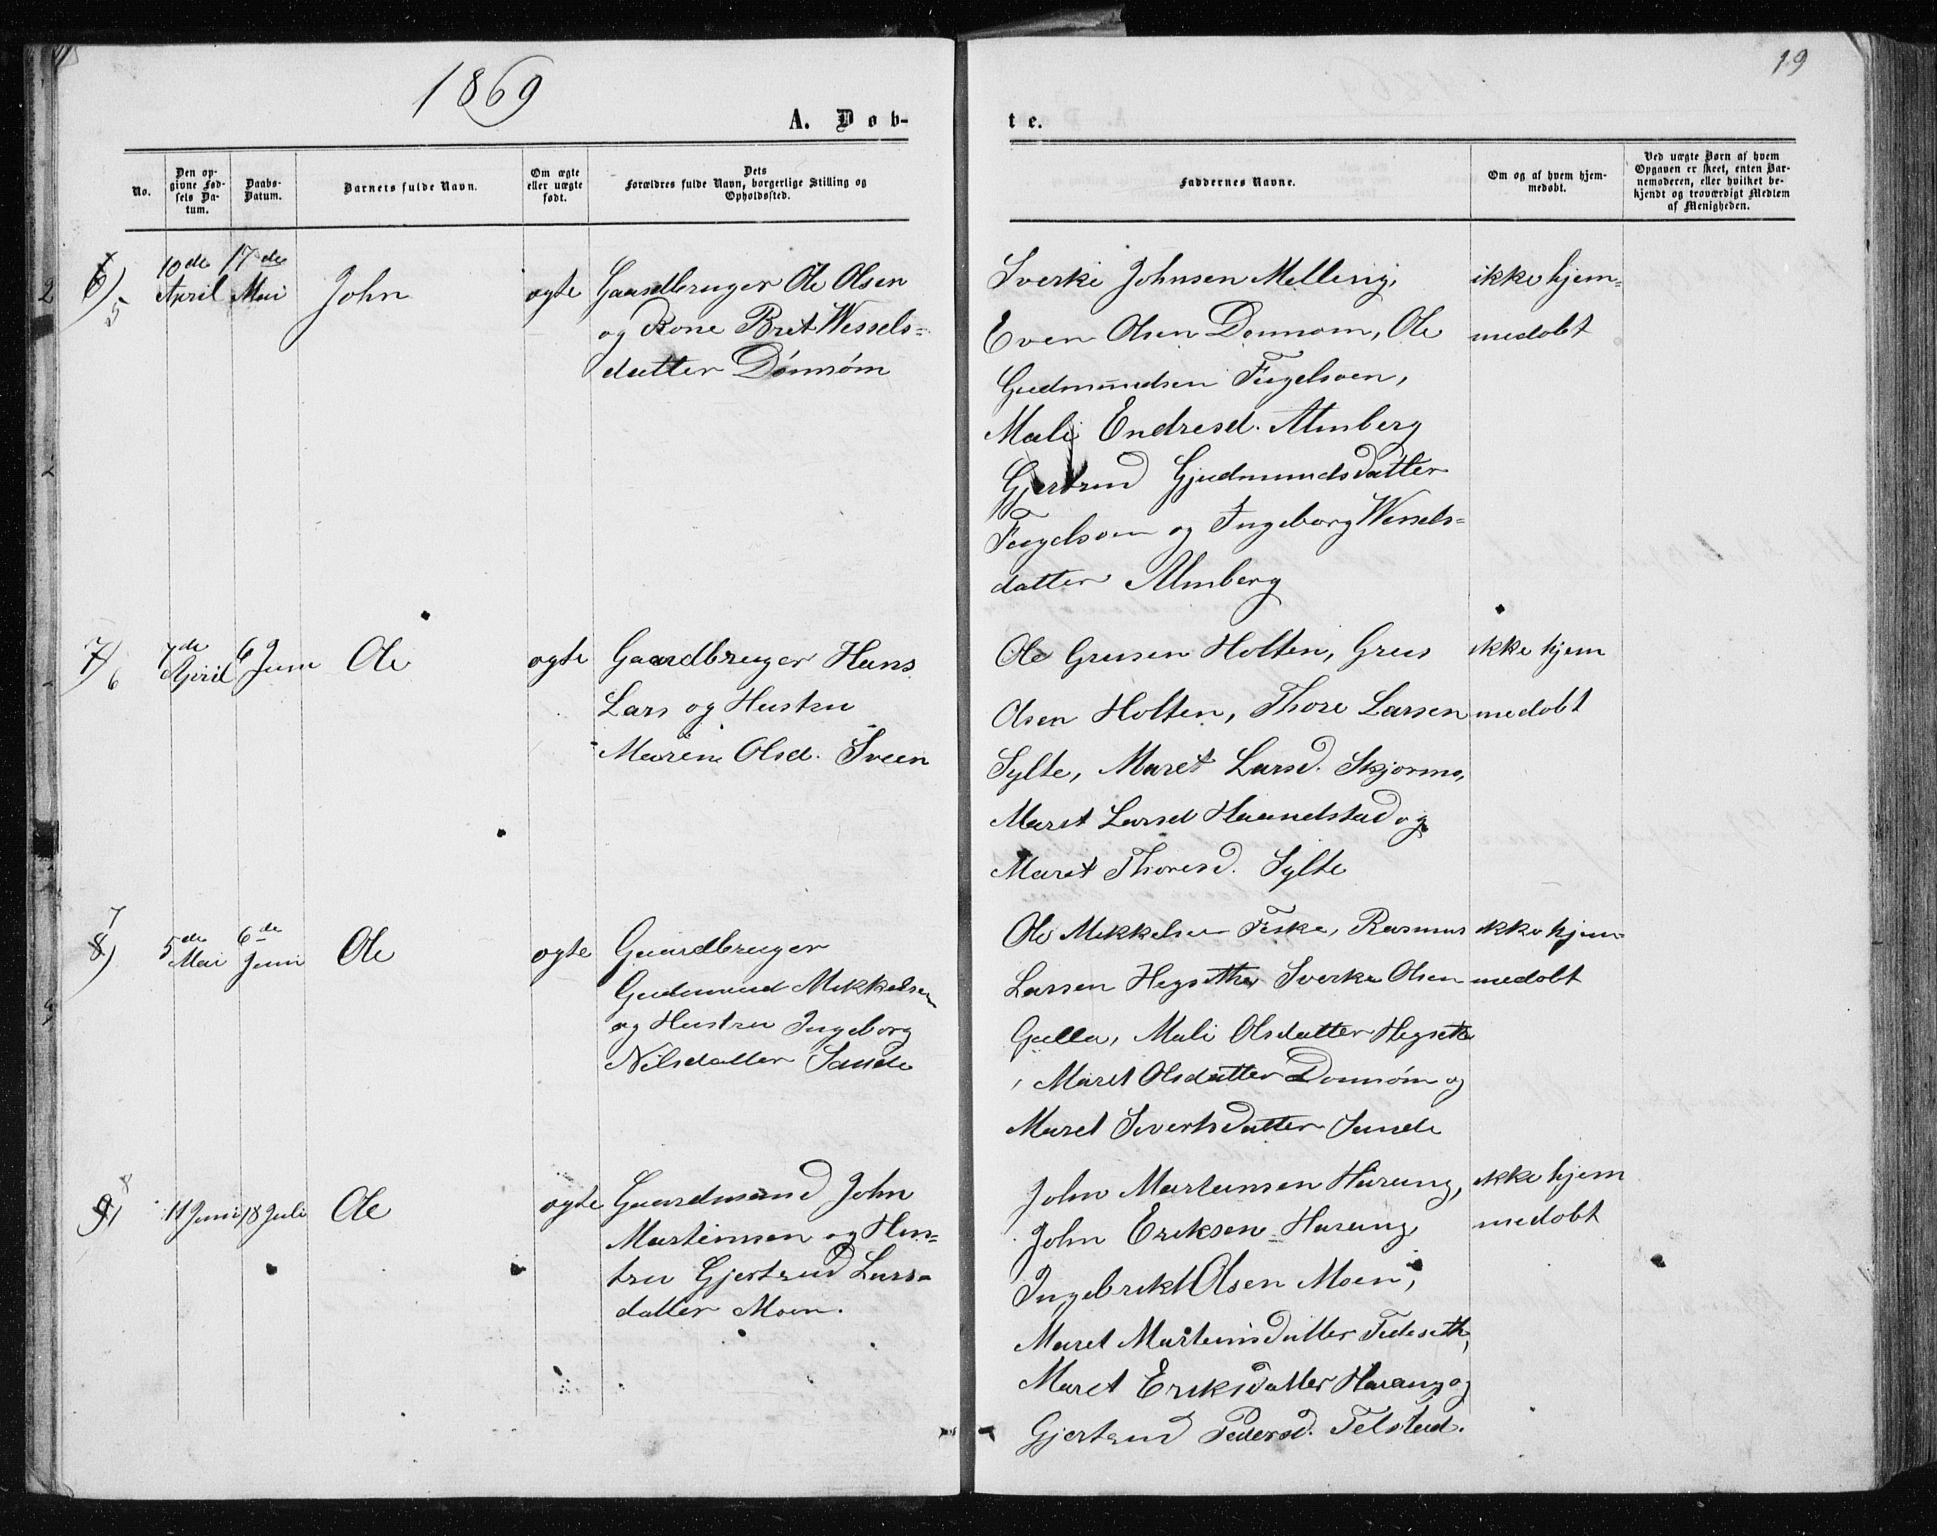 1869
19
A. Døb-
te.
No.
Den op-
givne Fød-
sels Da-
tum.
Daabs-
Datum.
Barnets fulde Navn.
Om ægte
eller uægte
født.
Dets
Forældres fulde Navn, borgerlige Stilling og
Opholdssted.
Faddernes Navne.
Om og af hvem hjem-
medøbt.
Ved uægte Børn af hvem
Opgaven er skeet, enten Bar-
nemoderen, eller hvilket be-
kjendt og troværdigt Medlem
af Menigheden.
6) 5
10de April
17de Mai
John
ægte
Gaardbruger Ole Olsen
og Kone Bret Wessels=
datter Dønnøm
Sverke Johnsen Melling,
Even Olsen Donnom, Ole
Gudmundsen Fugelsoen,
Mali Endresd. Almberg
Gjertrud Gjudmundsdatter
Fugelsoen og Ingeborg Wessels=
datter Almberg
ikke hjem=
medøbt
7) 6
7de April
6 Juni
Ole
ogte
Gaardbruger Hans
Lars og Hustru
Maren Olsd. Sveen
Ole Gresen Holten, Greis
Olsen Holten, Thore Larsen
Sylte, Maret Larsd. Skjørmo,
Marit Larsd Haandstad og
Maret Thoresd. Sylte
ikke hjem
medobt
7
8)
5de Mai
6de Juni
Ole
ogte
Gaardbruger
Gudmund Mikkelsen
og Hustru Ingeborg
Nilsdatter Sande
Ole Mikkelsen Fiske, Rasmus
Larsen Hegseth, Sverke Olsen
Gulla, Mali Olsdatter Hegseth
, Marit Olsdatter Donnøm og
Maret Sivertsdatter Sande
ikke hjem=
medobt
8
9)
11 Juni
18 Juli
Ole
ogte
Gaardmand John
Martinsen og Hus=
tru Gjertrud Lars=
datter Moen.
John Martinsen Harang,
John Eriksen Harang,
Ingebrikt Olsen Moen,
Maret Martinsdatter Fedeseth,
Maret Eriksdatter Harang og
Gjertrud Pedersd. Telstad.
ikke hjem
medobt